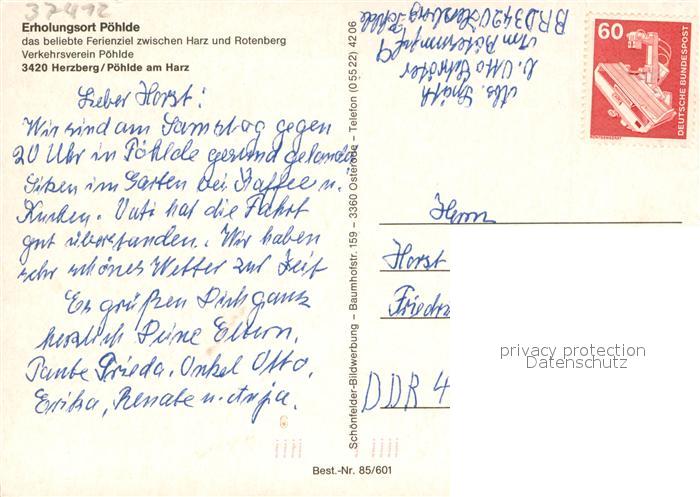 37412
Erholungsort Pöhlde
das beliebte Ferienziel zwischen Harz und Rotenberg
Verkehrsverein Pöhlde
3420 Herzberg/Pöhlde am Harz
Lieber Horst!
Wir sind am Samstag gegen
20 Uhr in Pöhlde gesund gelandet
Sitzen im Garten bei Kaffee u.
Kuchen. Vati hat die Fahrt
gut überstanden. Wir haben
sehr schönes Wetter zur Zeit
Es grüßen Dich ganz
herzlich Deine Eltern,
Tante Frieda, Onkel Otto,
Erika, Renate u. Anja.
Schönfelder-Bildwerbung – Baumhofstr. 159 – 3360 Osterode – Telefon (05522) 4206
Best.-Nr. 85/601
Abs. Späth
b. Otto Schröter
BRD 3420 Herzberg-Pöhlde
60
DEUTSCHE BUNDESPOST
RÖNTGENGERÄT
Herrn
Horst
Friedri
DDR 4
privacy protection
Datenschutz